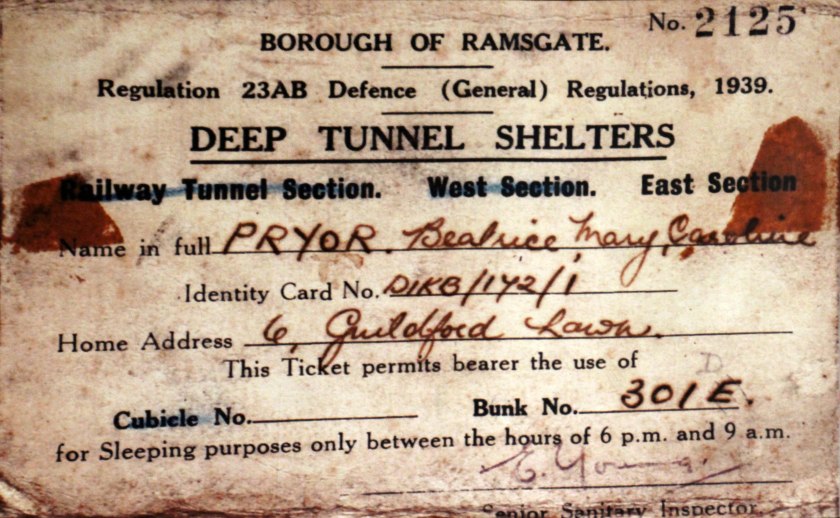 No. 2125
BOROUGH OF RAMSGATE.
Regulation 23AB Defence (General) Regulations, 1939.
DEEP TUNNEL SHELTERS
Railway Tunnel Section. West Section. East Section
Name in full PRYOR. Beatrice, Mary, Caroline
Identity Card No. DIKB/172/1
Home Address 6, Guildford Lawn.
This Ticket permits bearer the use of
D
Cubicle No. Bunk No. 301E.
for Sleeping purposes only between the hours of 6 p.m. and 9 a.m.
E. Young.
Senior Sanitary Inspector.